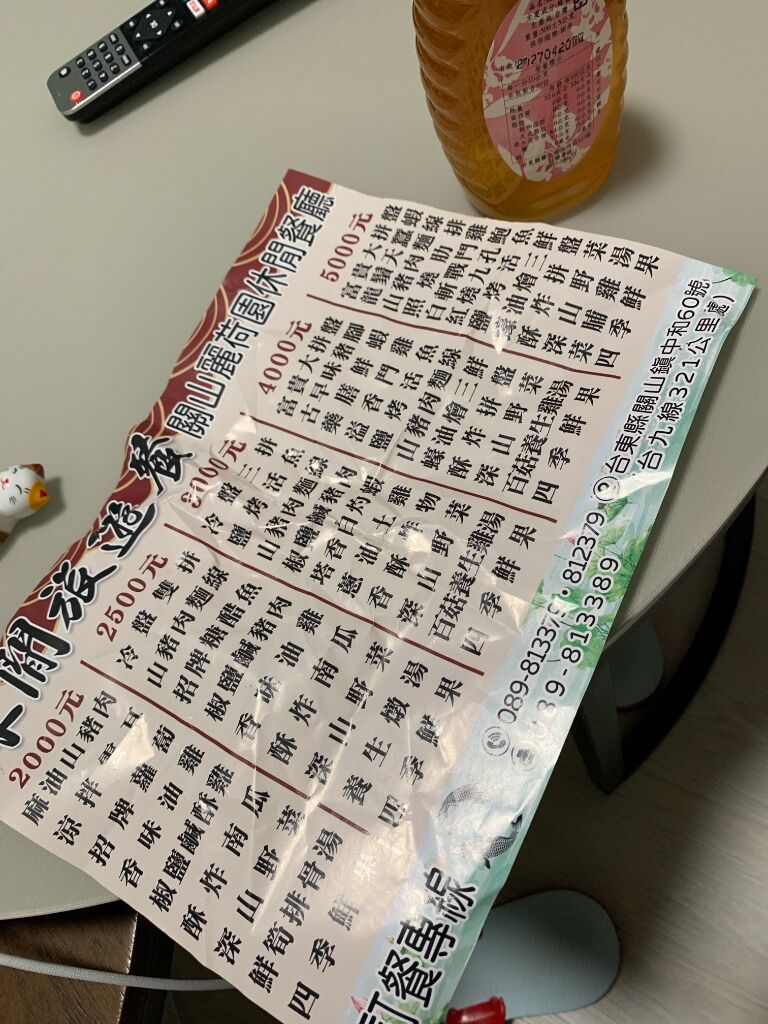 關山麗荷園休閒餐廳
閒旅遊餐
5000元
富貴大拼盤
龍鬚天蠶蝦
山豬肉麵線
照燒肋排
白斬戰鬥雞
紅燒九孔鮑
鹽烤活魚
蠔油燴三鮮
酥炸拼盤
深山野菜
菜脯雞湯
四季鮮果
4000元
富貴大拼盤
古早味豬腳
藥膳鮮蝦
溢香鬥雞
鹽烤活魚
山豬肉麵線
蠔油燴三鮮
酥炸拼盤
深山野菜
百菇養生雞湯
四季鮮果
3000元
冷盤三拼
鹽烤活魚
山豬肉麵線
椒鹽鹹豬肉
塔香白灼蝦
蔥油土雞
香酥炸物
深山野菜
百菇養生雞湯
四季鮮果
2500元
冷盤雙拼
山豬肉麵線
招牌糖醋魚
椒鹽鹹豬肉
香味油雞
酥炸南瓜
深山野菜
養生燉湯
四季鮮果
2000元
麻油山豬肉
涼拌雲耳
招牌蘿蔔
香味油雞
椒鹽鹹酥雞
酥炸南瓜
深山野菜
鮮筍排骨湯
四季鮮
訂餐專線
089-813379・812379
089-813389
台東縣關山鎮中和60號
台九線321公里處)
270420